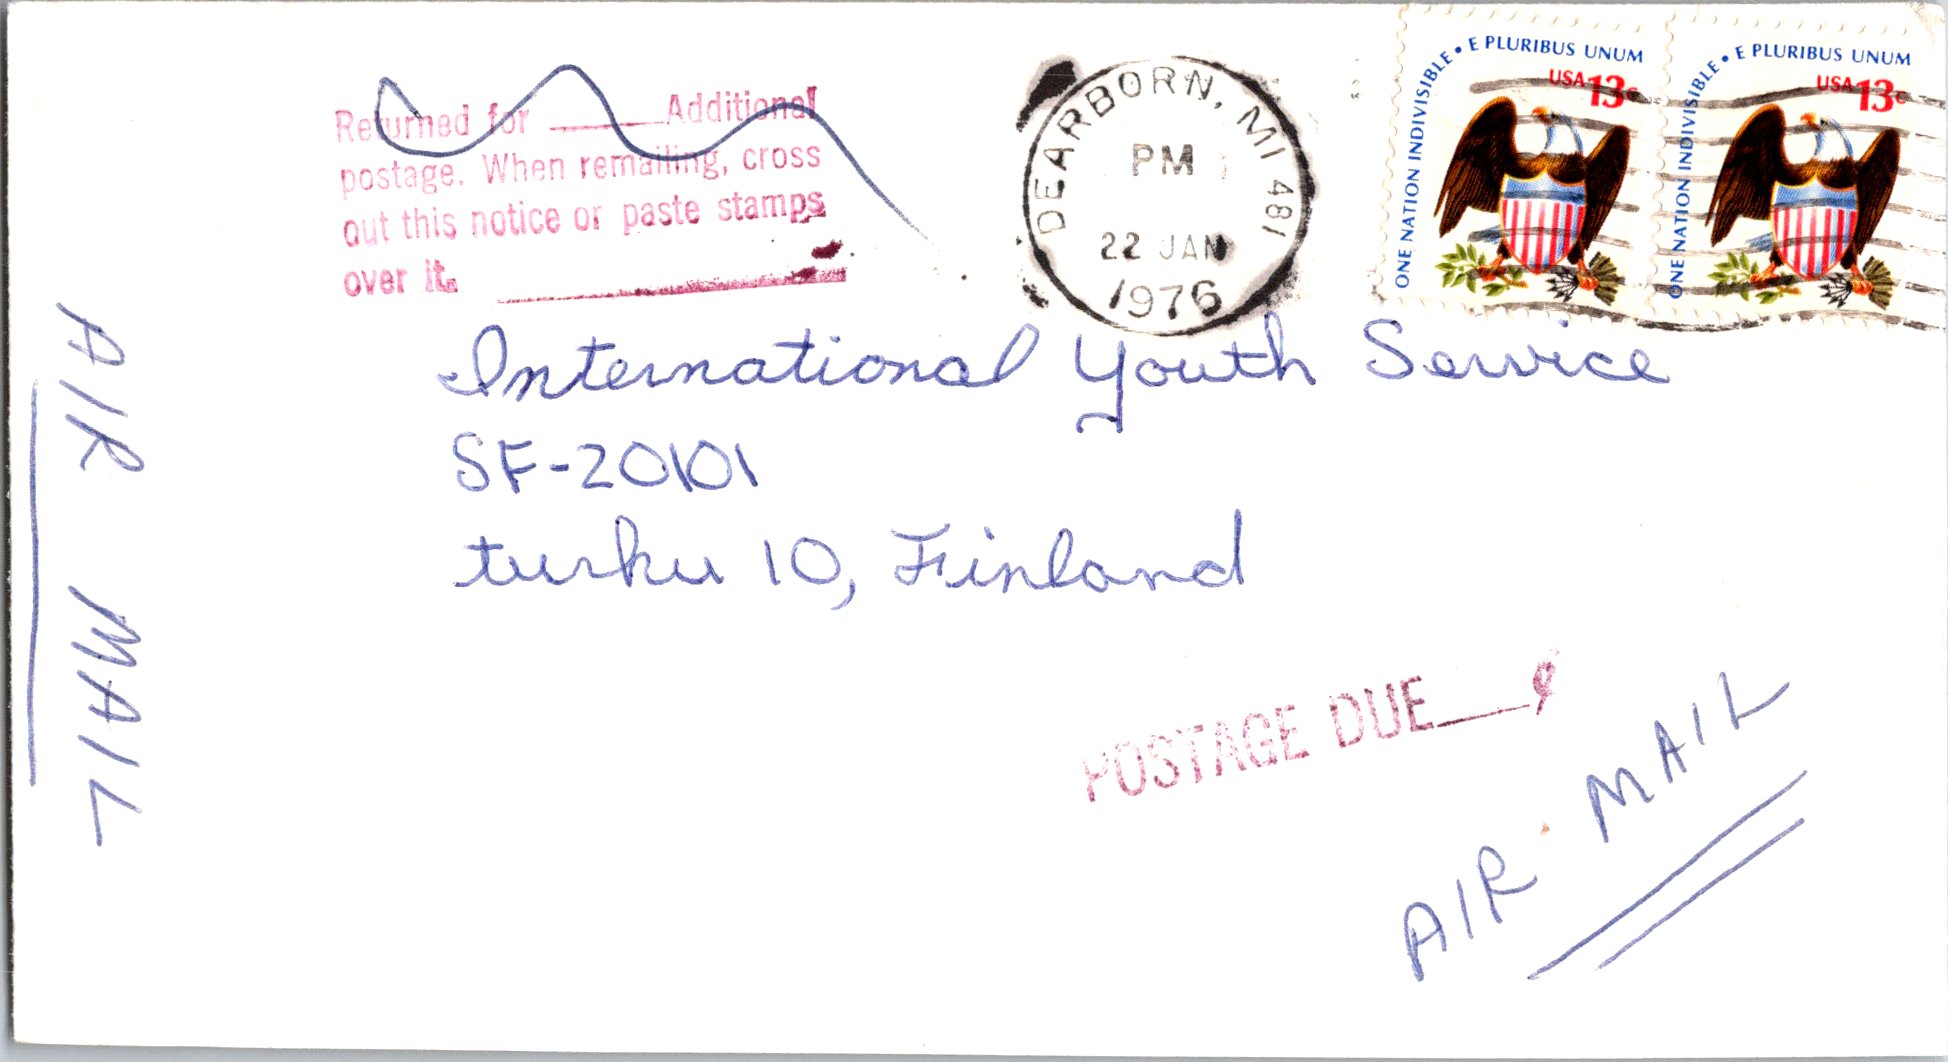 Returned for ______ Additional
postage. When remailing, cross
out this notice or paste stamps
over it.
DEARBORN, MI 481
PM
22 JAN
1976
ONE NATION INDIVISIBLE • E PLURIBUS UNUM
USA 13c
ONE NATION INDIVISIBLE • E PLURIBUS UNUM
USA 13c
International Youth Service
SF-20101
turku 10, Finland
AIR MAIL
POSTAGE DUE ____ ¢
AIR-MAIL